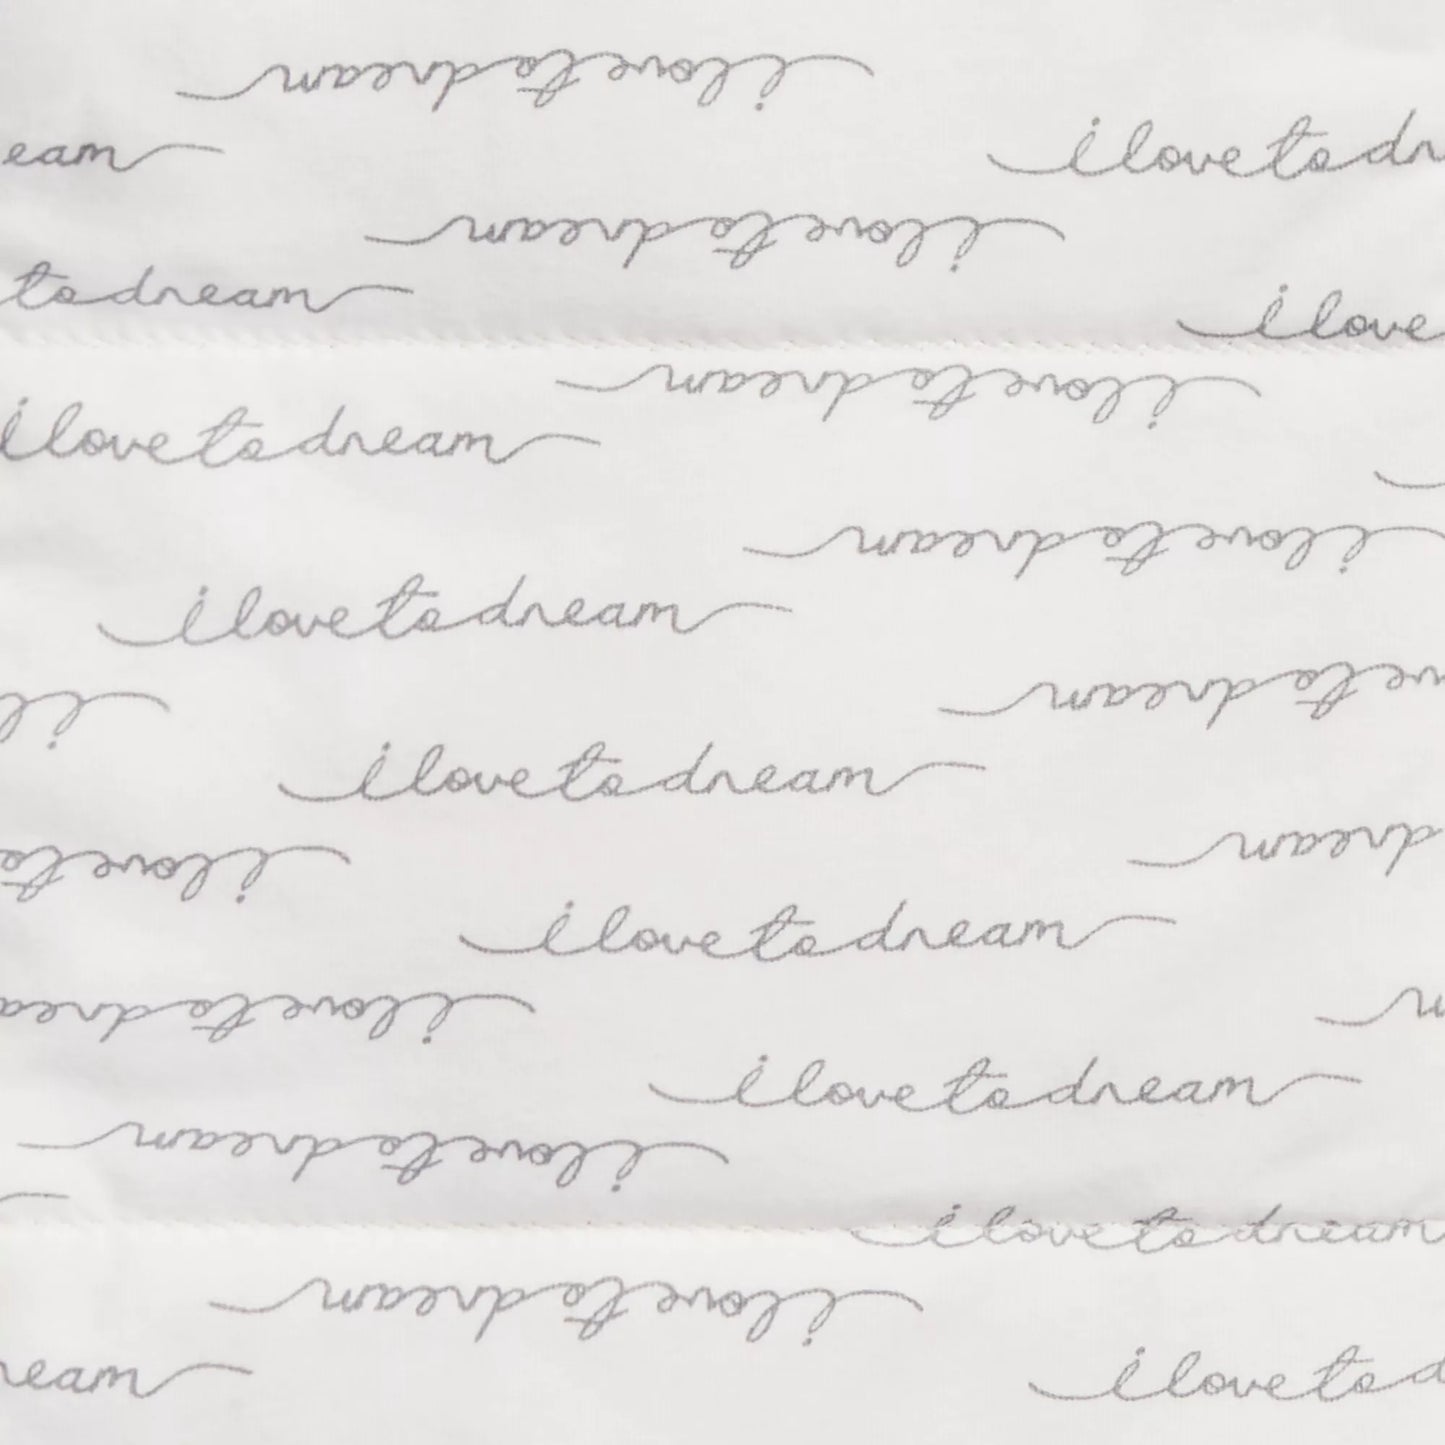 i love to dream
eam
i love to dr
i love to dream
to dream
i love
i love to dream
i love to dream
i love to dream
i love to dream
ve to dream
il
i love to dream
dream
i love to
i love to dream
i love to drea
m
i love to dream
i love to dream
i love to dream
i love to dream
ream
i love to d